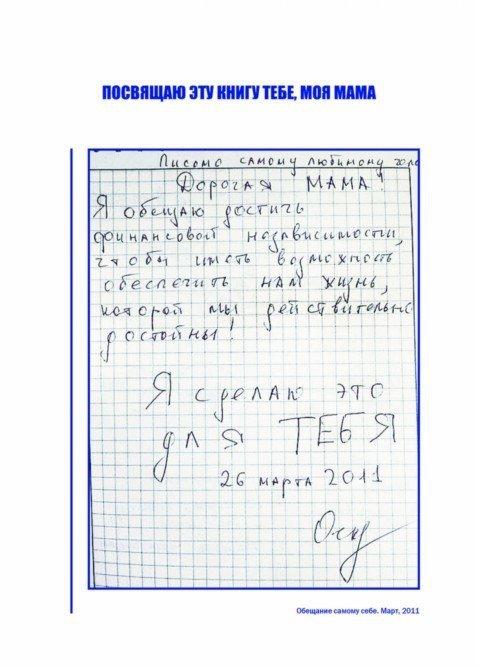 ПОСВЯЩАЮ ЭТУ КНИГУ ТЕБЕ, МОЯ МАМА
Письмо самому любимому
Дорогая МАМА!
Я обещаю достичь
финансовой независимости,
чтобы иметь возможность
обеспечить нам жизнь,
которой мы действительно
достойны!
Я сделаю это
для ТЕБЯ
26 марта 2011
Обещание самому себе. Март, 2011